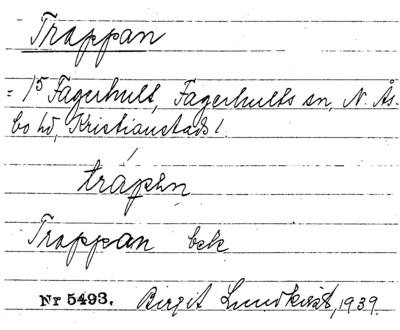 Trappan
= 1⁵ Fagerhult, Fagerhults sn, N. Ås-
bo hd, Kristianstads l.
Trappan bek
Nr 5493. Birgit Lundkvist, 1939.